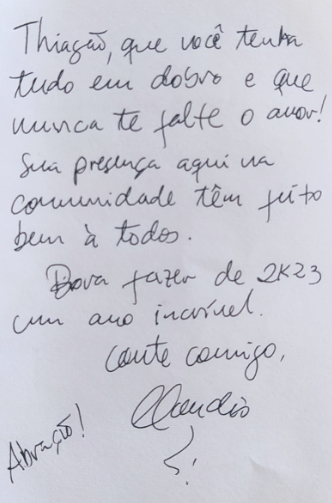 Thiagão, que você tenha
tudo em dobro e que
nunca te falte o amor!
Sua presença aqui na
comunidade têm feito
bem à todos.
Bora fazer de 2K23
um ano incrível.
Conte comigo,
Claudio
Abração!